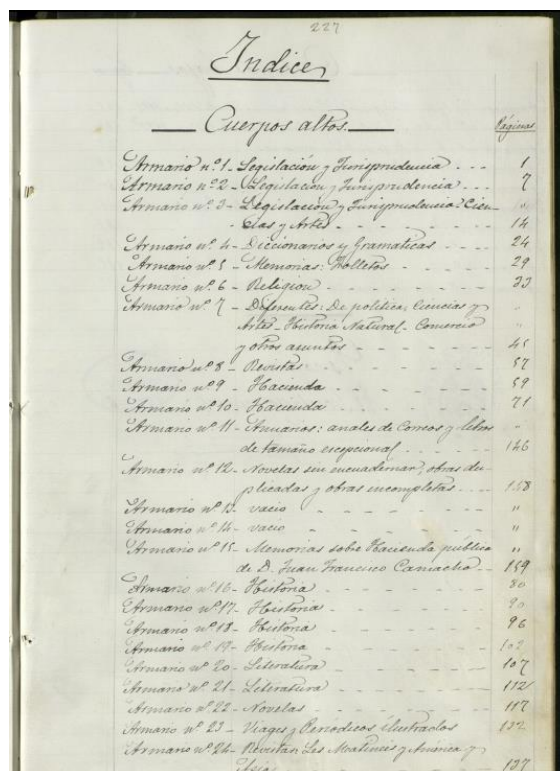 227
Indice
Cuerpos altos.
Páginas
Armario nº 1 - Legislación y Jurisprudencia - - - 1
Armario nº 2 - Legislación y Jurisprudencia - - - 7
Armario nº 3 - Legislación y Jurisprudencia: Cien- "
cias y Artes - - - - - - 14
Armario nº 4 - Diccionarios y Gramaticas - - - - 24
Armario nº 5 - Memorias: Folletos - - - - - - 29
Armario nº 6 - Religion - - - - - - - 33
Armario nº 7 - Diferentes: De politica, Ciencias y "
Artes - Historia Natural - Comercio "
y otros asuntos - - - - - - 45
Armario nº 8 - Revistas - - - - - - - 57
Armario nº 9 - Hacienda - - - - - - - 59
Armario nº 10 - Hacienda - - - - - - - 71
Armario nº 11 - Anuarios: anales de Correos y libros "
de tamaño escepcional - - - - - 146
Armario nº 12 - Novelas sin encuadernar, obras du-
plicadas y obras incompletas - - - 158
Armario nº 13 - vacio - - - - - - "
Armario nº 14 - vacio - - - - - - "
Armario nº 15 - Memorias sobre Hacienda pública "
de D. Juan Francisco Camacho - - 159
Armario nº 16 - Historia - - - - - - 80
Armario nº 17 - Historia - - - - - - 90
Armario nº 18 - Historia - - - - - - 96
Armario nº 19 - Historia - - - - - - 102
Armario nº 20 - Literatura - - - - - - 107
Armario nº 21 - Literatura - - - - - - 112
Armario nº 22 - Novelas - - - - - - 117
Armario nº 23 - Viages y Periodicos ilustrados 132
Armario nº 24 - Revistas Les Matinées y América y
Asia - - - - - - 137